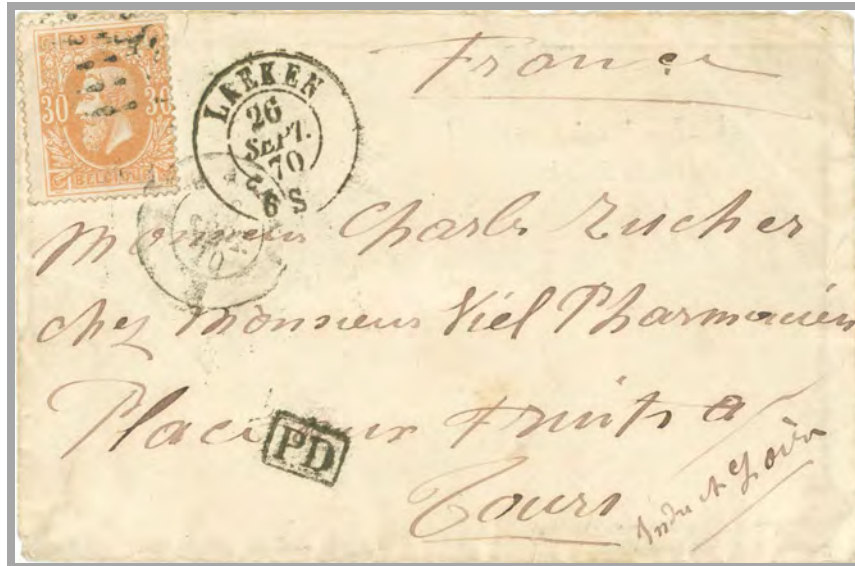 30 30
BELGIQUE
LAEKEN
26
SEPT.
70
6 S
France
Monsieur Charles Zucher
chez Monsieur Viel Pharmacien
Place aux Fruits a
PD
Tours
Indre et Loire